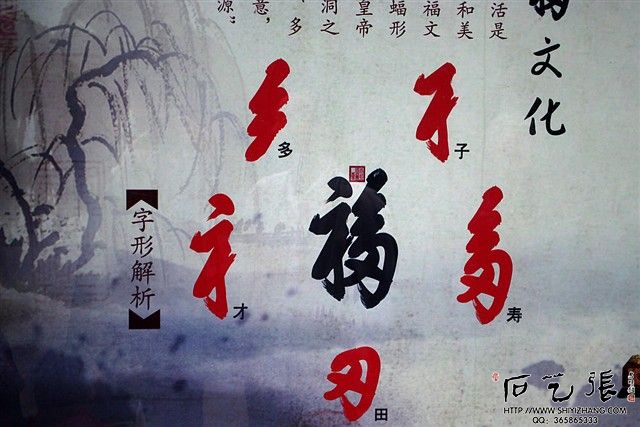 福文化
活是
和美
福文
蝠形
皇帝
洞之
、多
意，
源。”
多
子
福
才
寿
田
字形解析
石艺張
HTTP://WWW.SHIYIZHANG.COM
QQ: 365865333